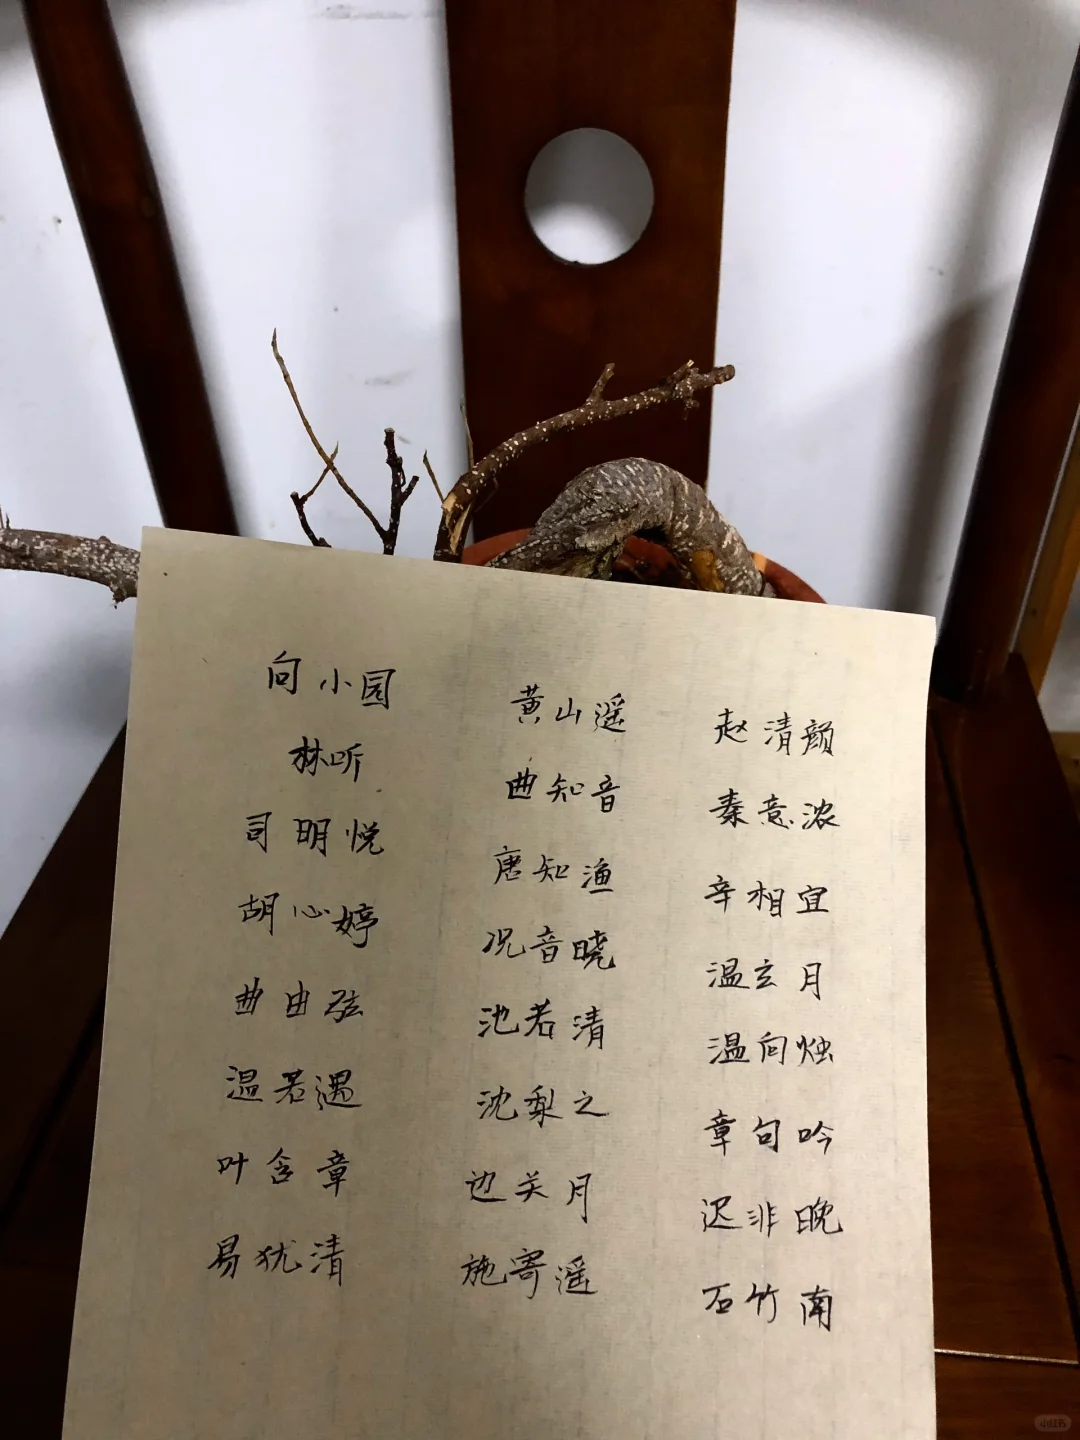 向小园
林听
司明悦
胡心婷
曲由弦
温若遇
叶含章
易犹清
黄山遥
曲知音
唐知渔
况音晓
池若清
沈梨之
边关月
施寄遥
赵清颜
秦意浓
辛相宜
温玄月
温向烛
章句吟
迟非晚
石竹南
小红书